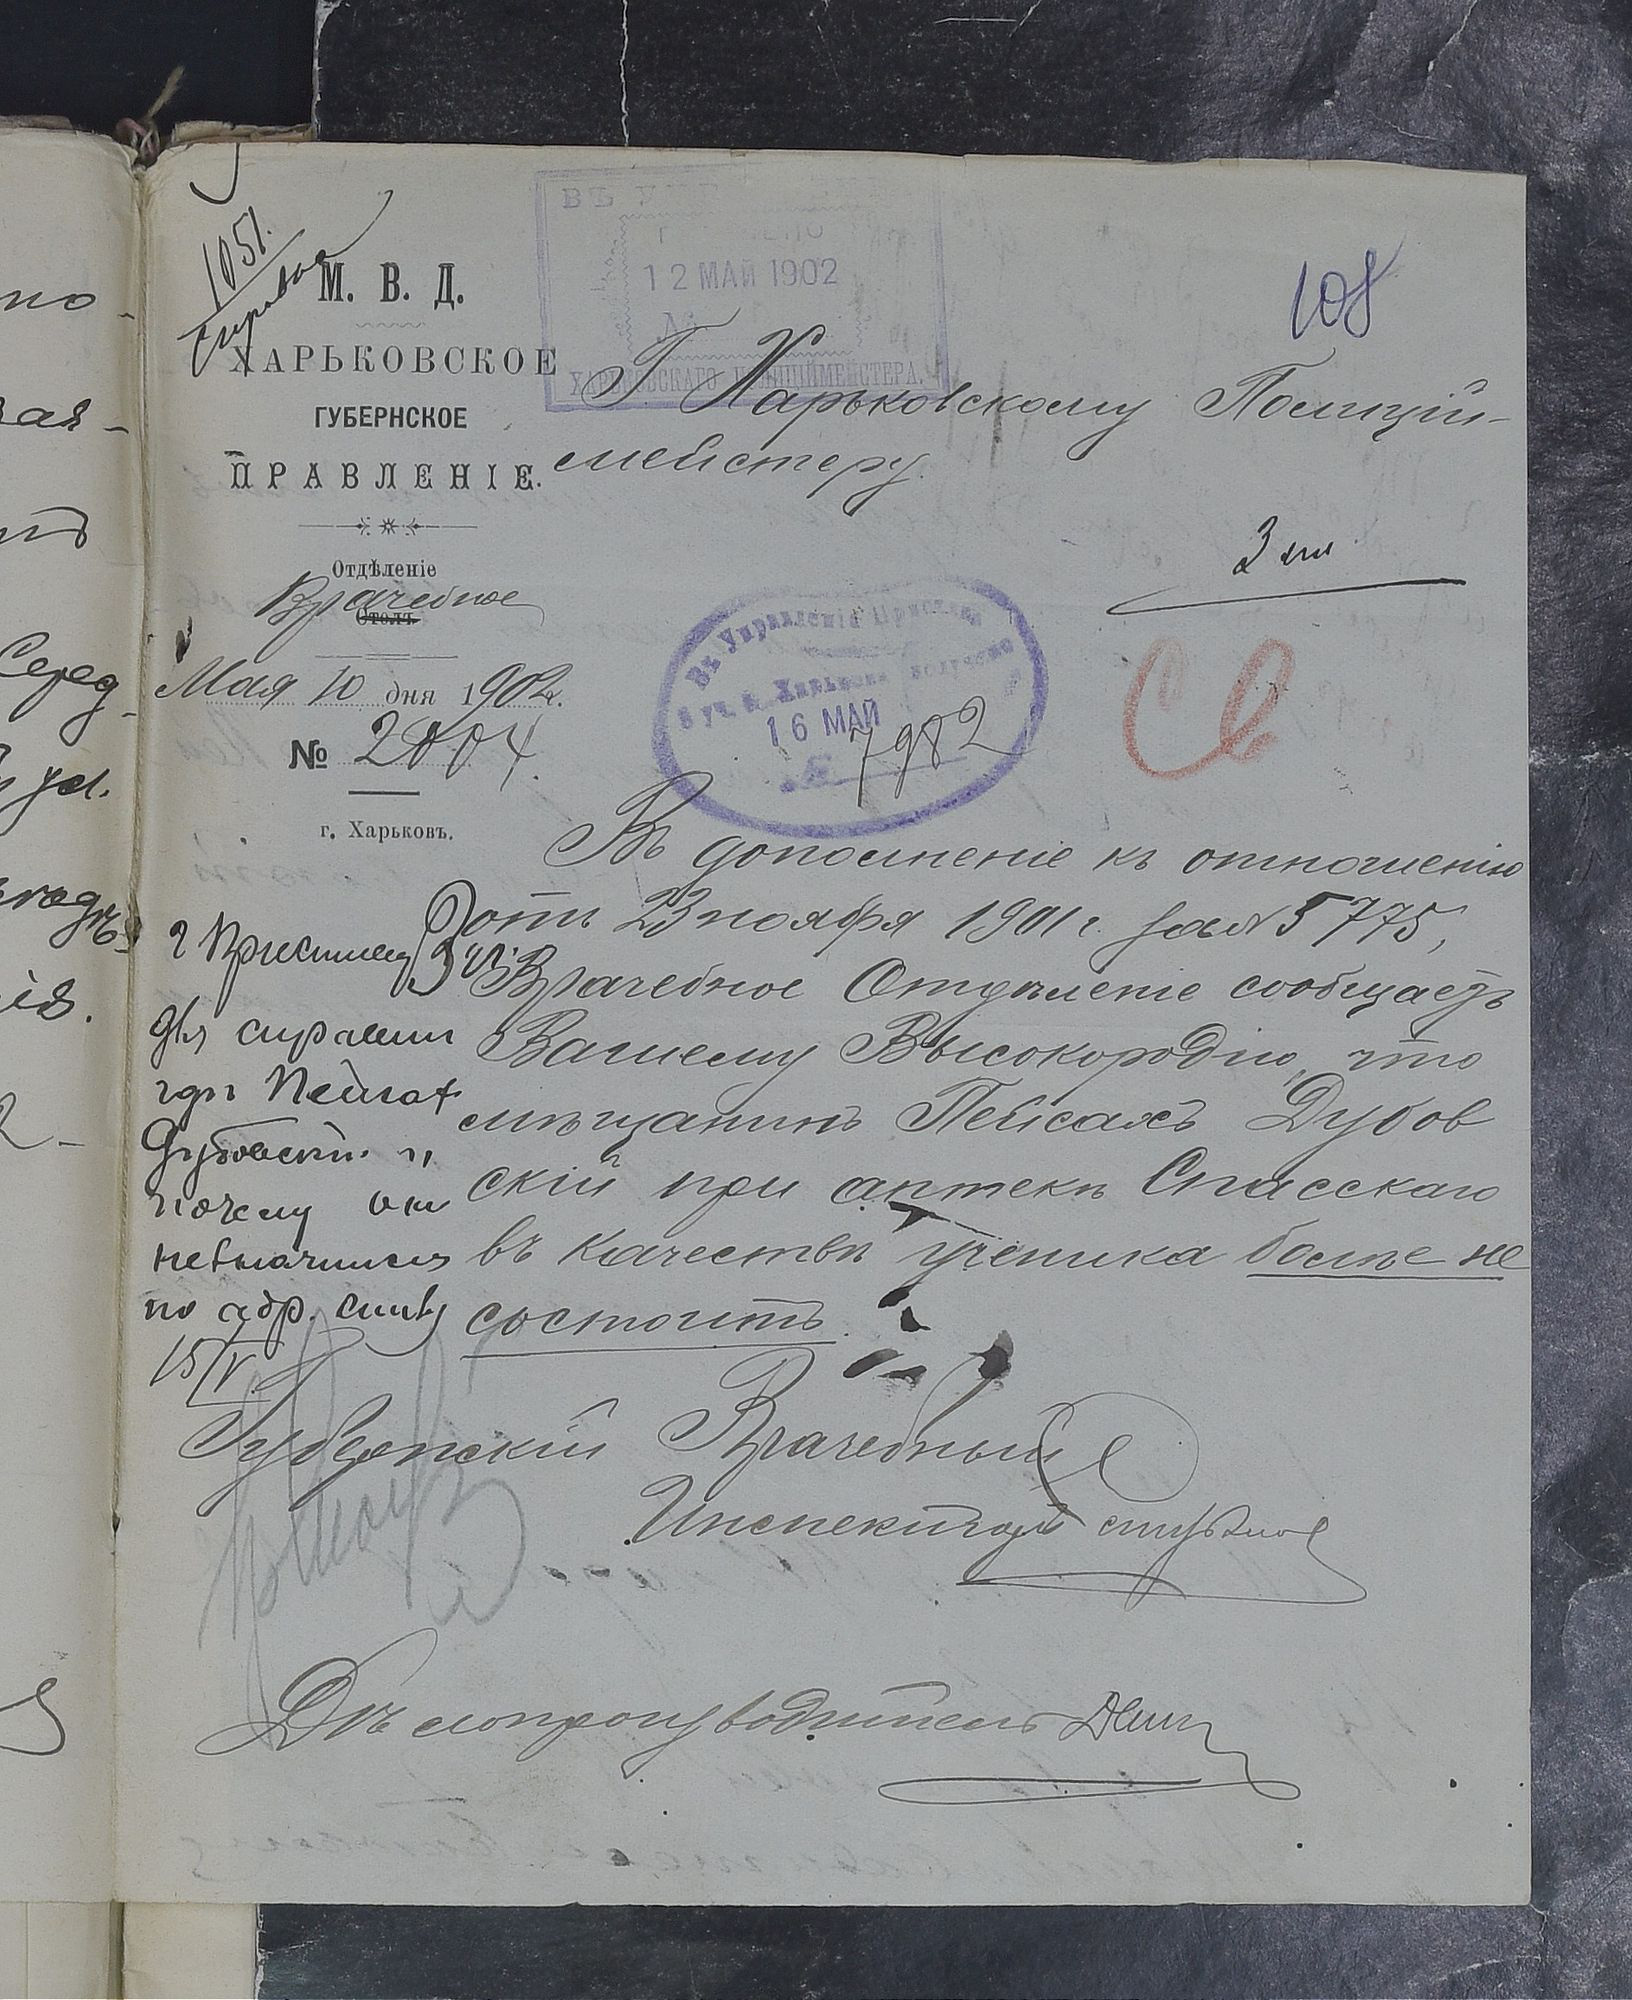 1051.
М. В. Д.
ХАРЬКОВСКОЕ
ГУБЕРНСКОЕ
ПРАВЛЕНІЕ.
Отдѣленіе
Врачебное
Столъ
Мая 10 дня 1902 г.
№ 2004.
г. Харьковъ.
12 МАЙ 1902
№
ХАРЬКОВСКАГО ПОЛИЦІЙМЕЙСТЕРА.
108
Г. Харьковскому Полицій-
мейстеру.
Въ Управленіи Пристава
уч. г. Харькова получено
16 МАЙ
№ 7982
Св
Въ дополненіе къ отношенію
отъ 23 ноября 1901 г. за № 5775,
Врачебное Отдѣленіе сообщаетъ
Вашему Высокородію, что
мѣщанинъ Пейсахъ Дубов
скій при аптекѣ Спасскаго
въ качествѣ ученика болѣе не
состоитъ.
г Приставу 3 уч.
для справки
гдѣ Пейсах
Дубовскій и
почему он
не значится
по адр. столу
15/V.
Губернскій Врачебный
Инспекторъ
Дѣлопроизводитель